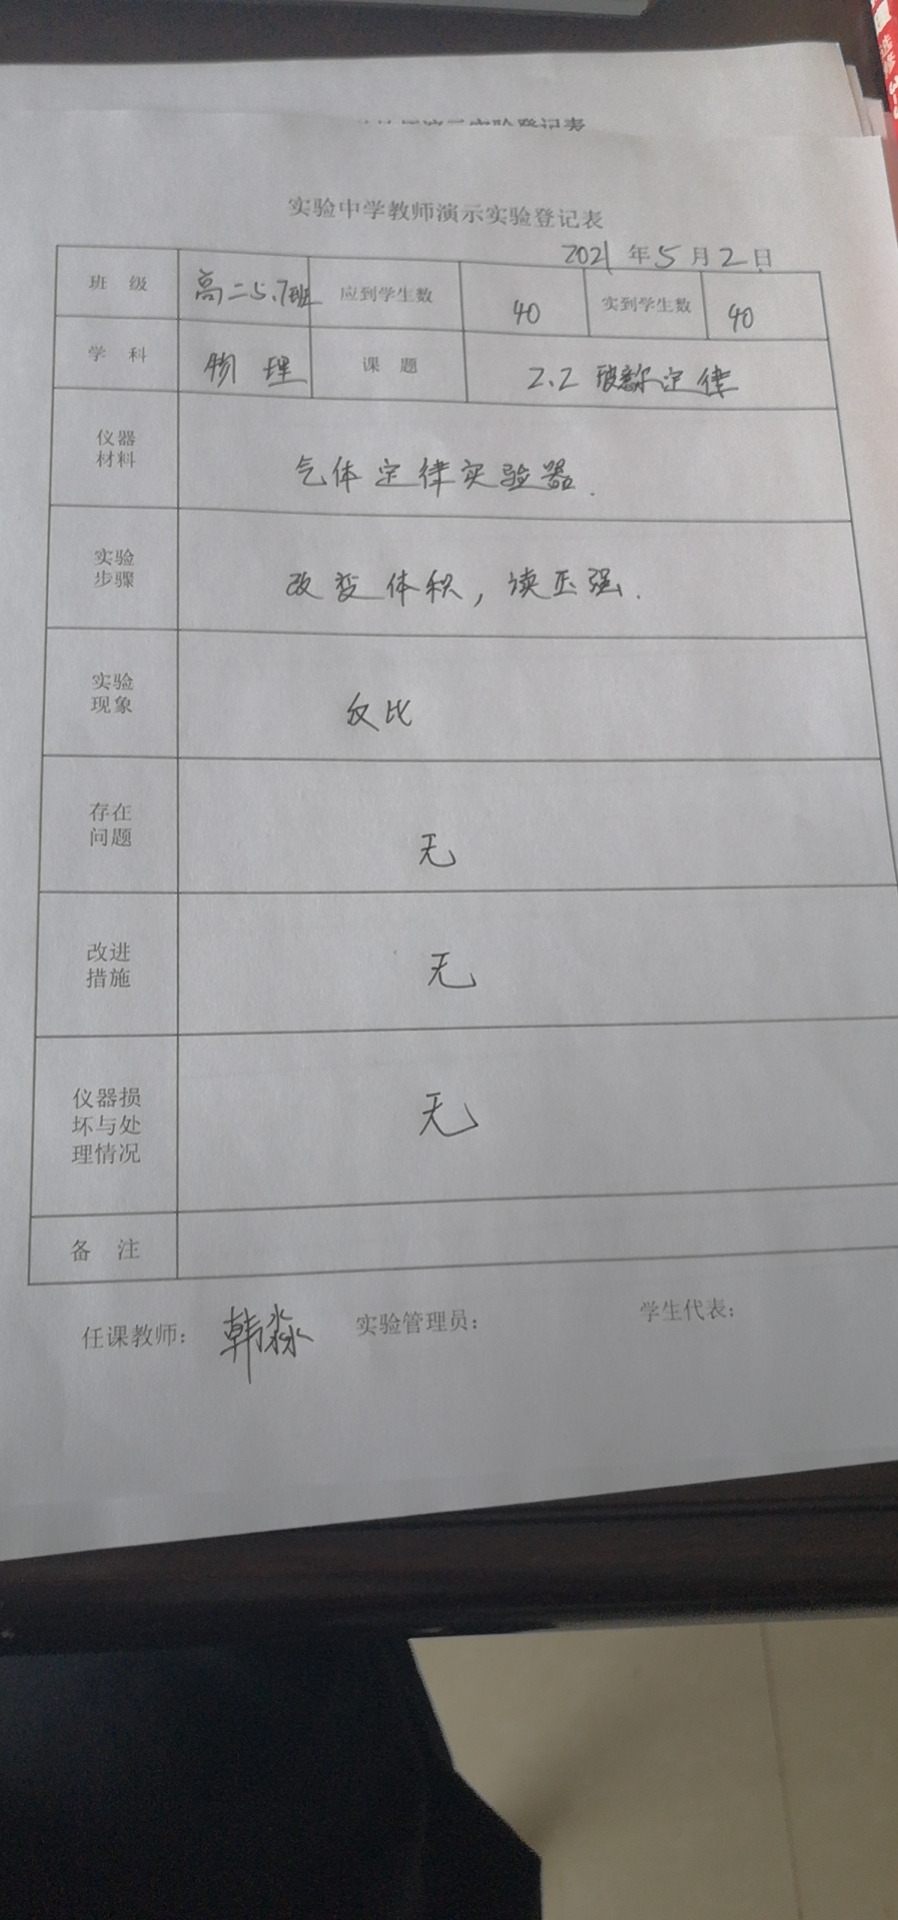 实验中学教师演示实验登记表
2021 年 5 月 2 日
班 级 高二5.7班 应到学生数 40 实到学生数 40
学 科 物 理 课 题 2.2 玻意尔定律
仪器
材料
气体定律实验器.
实验
步骤
改变体积，读压强.
实验
现象
反比
存在
问题
无
改进
措施
无
仪器损
坏与处
理情况
无
备 注
任课教师： 韩淼 实验管理员： 学生代表：